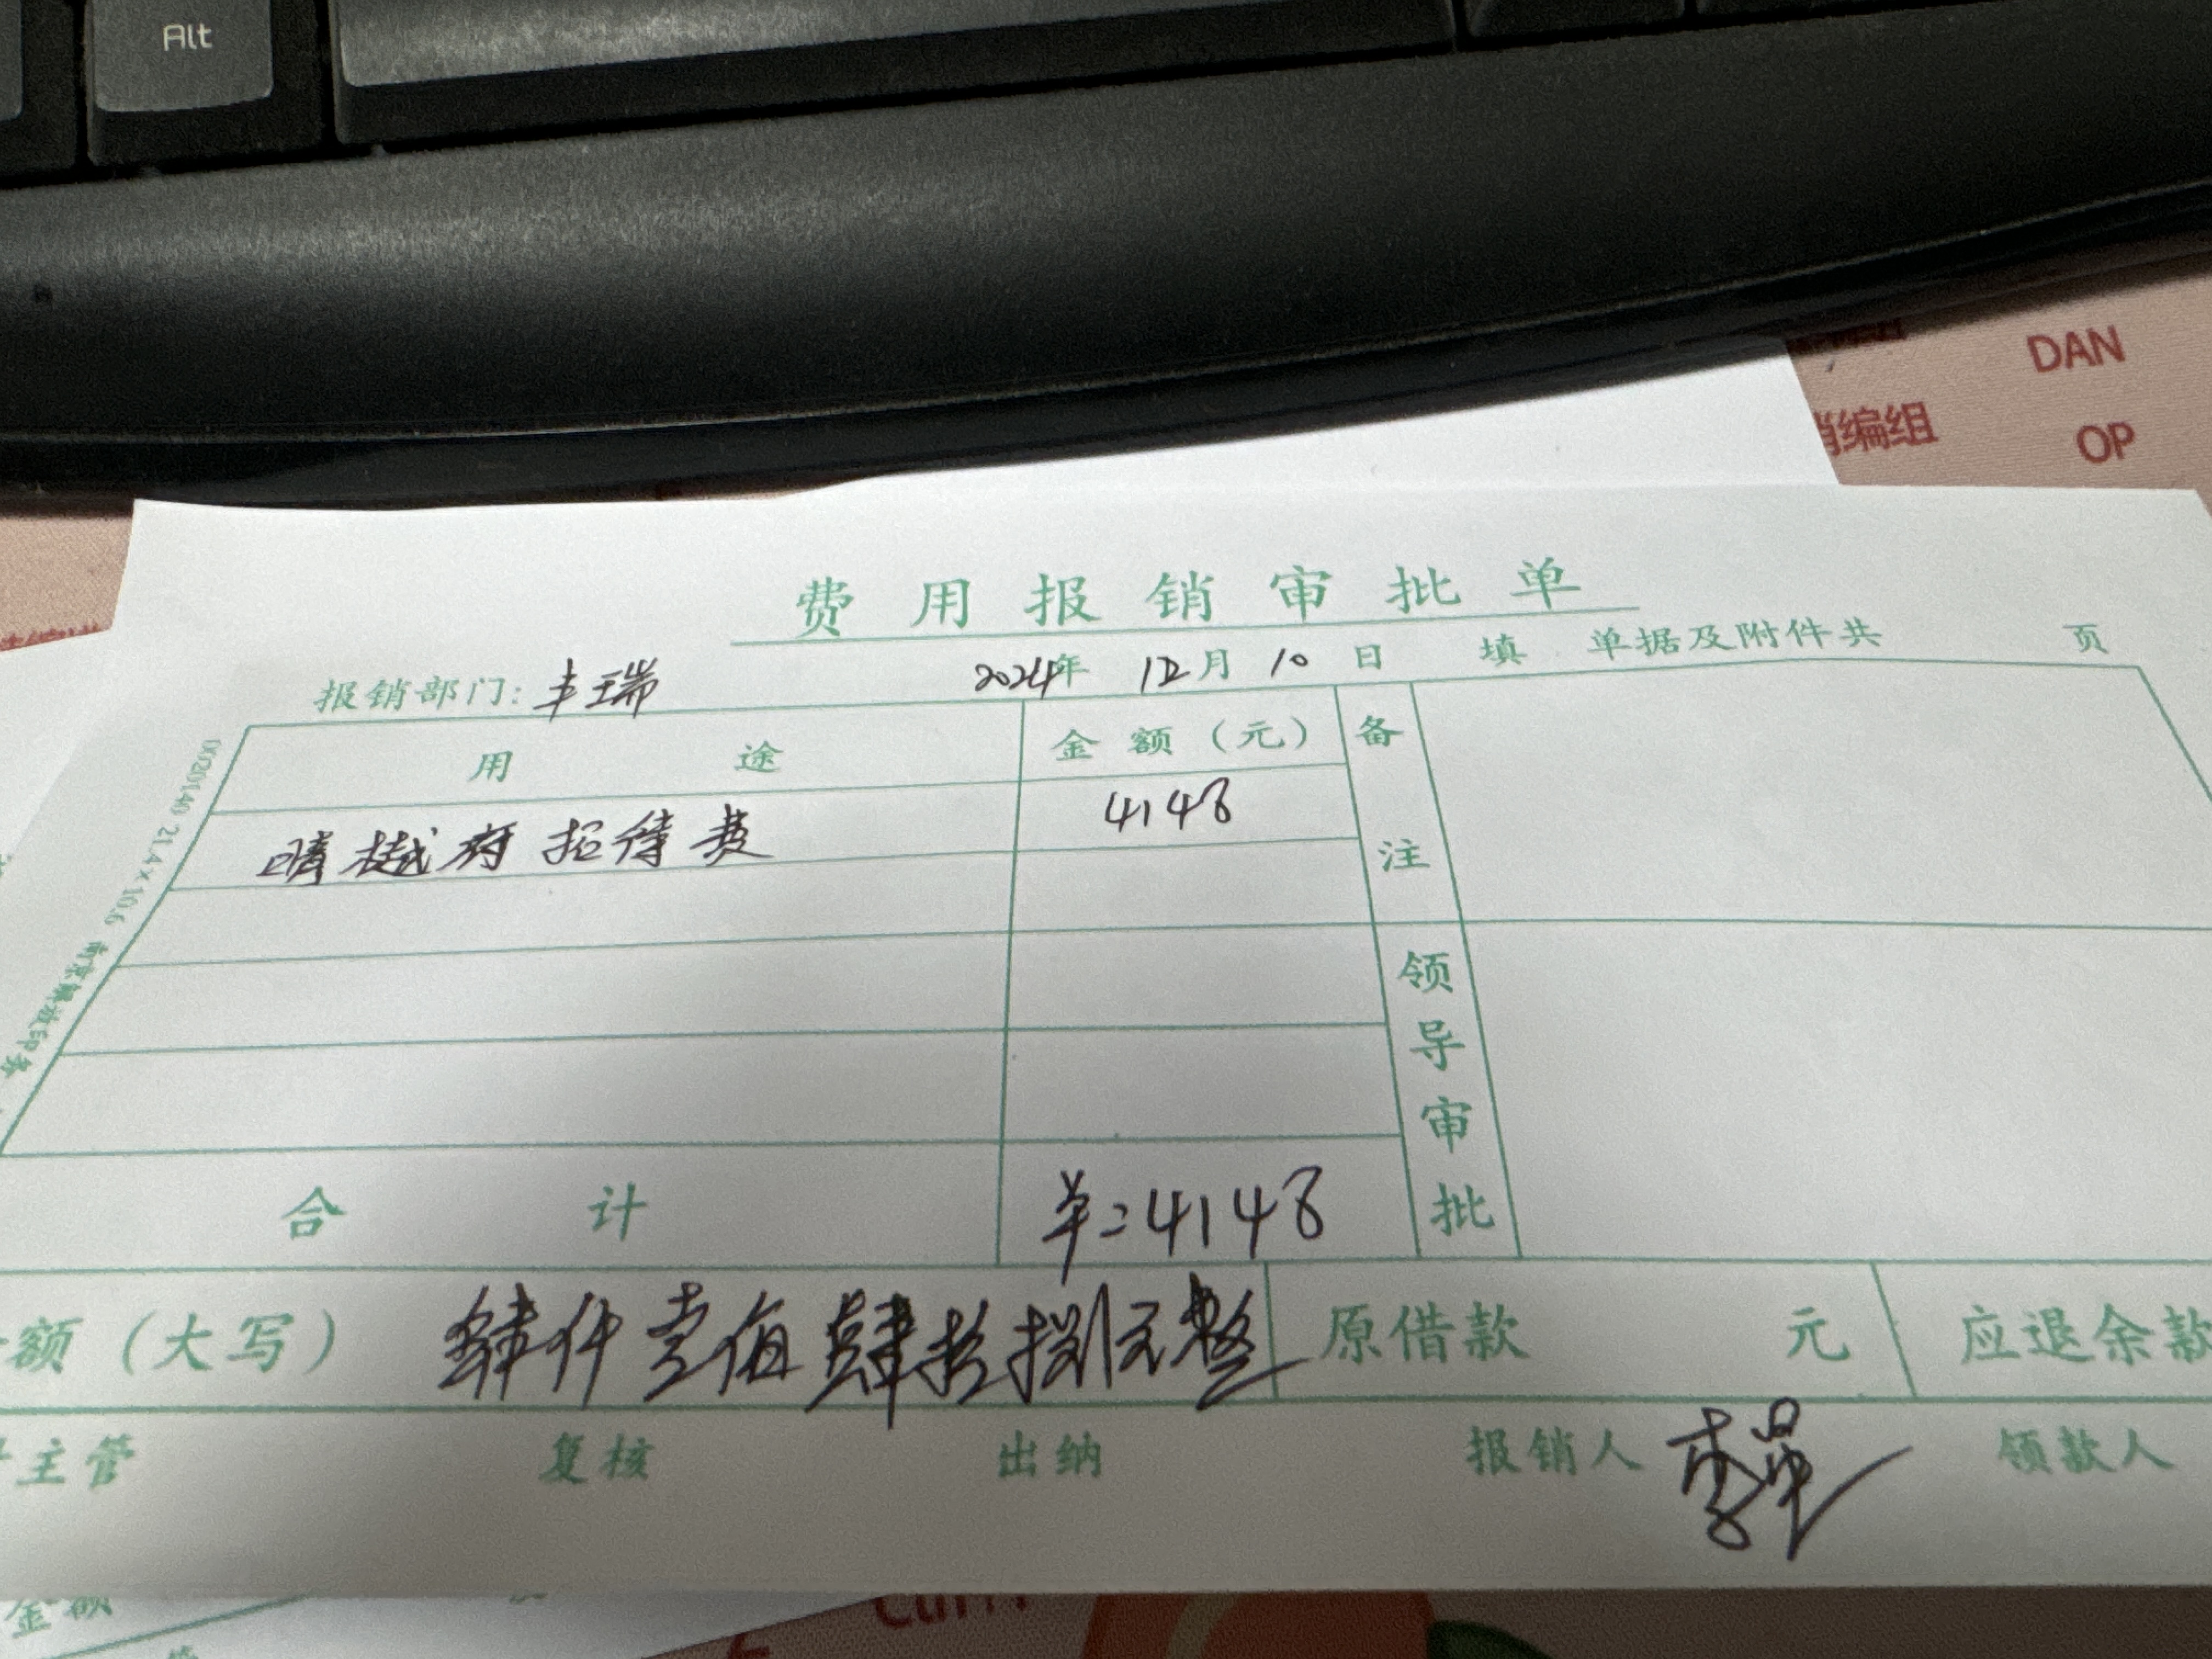 Alt
DAN
销编组
OP
费用报销审批单
报销部门: 丰瑞 2024年 12月 10日 填 单据及附件共 页
用途 金额(元) 备注
晴樾府招待费 4148
领导审批
合计 ¥:4148
额(大写) 肆仟壹佰肆拾捌元整 原借款 元 应退余款
主管 复核 出纳 报销人 领款人
21.4×10.6
金额